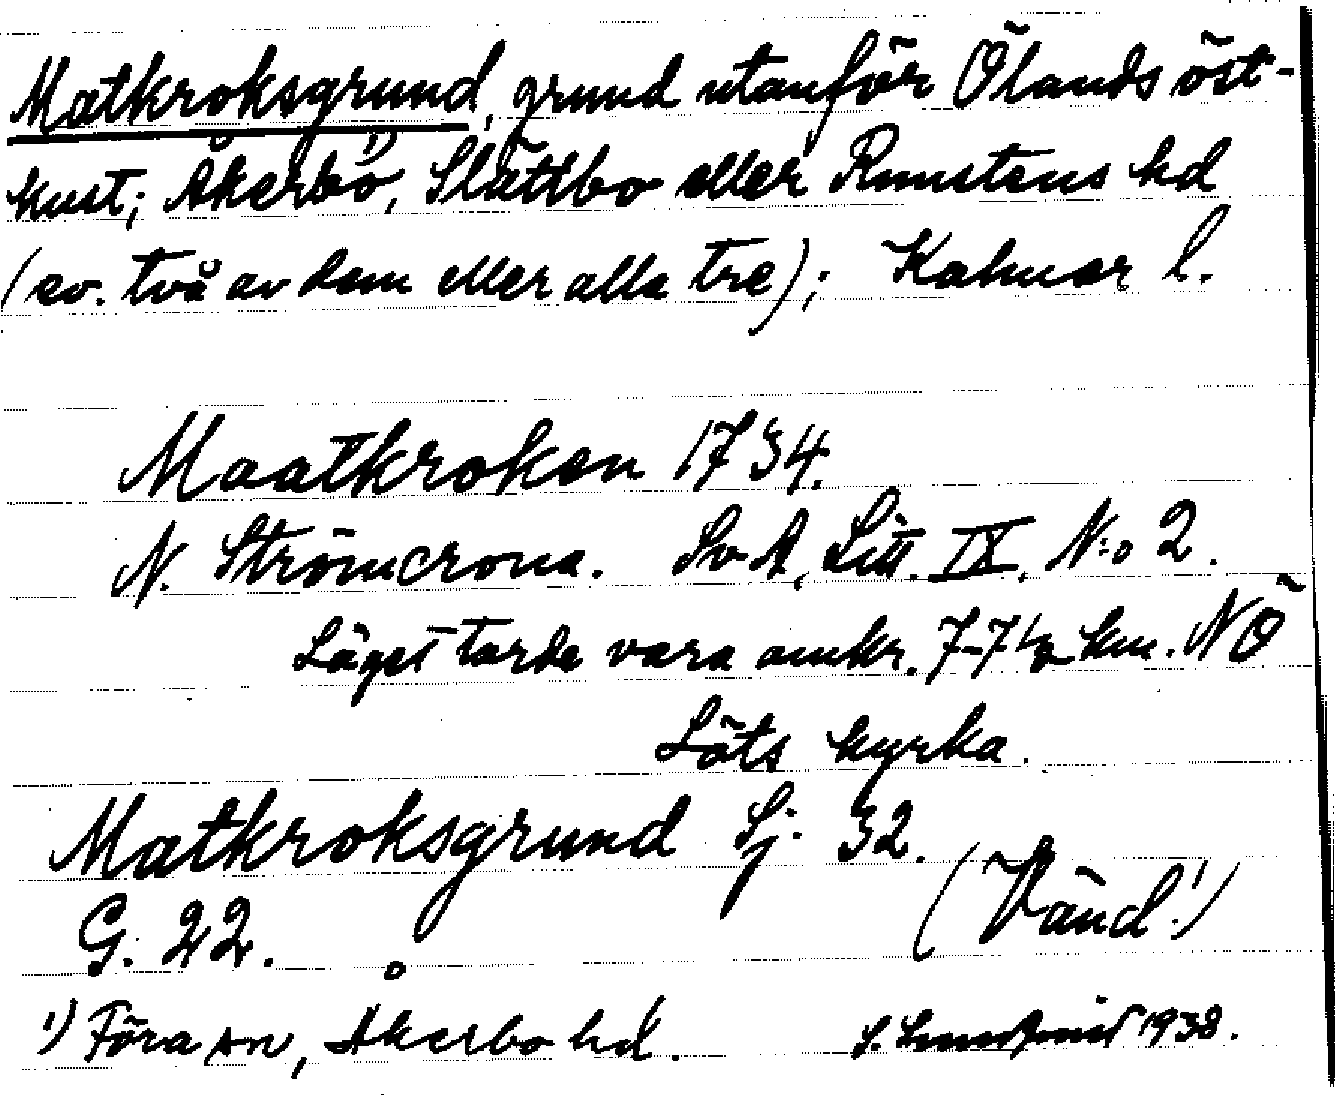 Matkroksgrund, grund utanför Ölands öst-
kust; Åkerbo¹⁾, Slättbo eller Runstens hd
(ev. två av dem eller alla tre); Kalmar l.
Maatkroken 1734.
N. Strömcrona. SvA, Litt. IX, N:o 2.
Läget torde vara omkr. 7-7½ km. NÖ
Löts kyrka.
Matkroksgrund Sj. 32.
G. 22.
(Vänd!)
¹⁾ Föra sn, Åkerbo hd.
S. 1938.